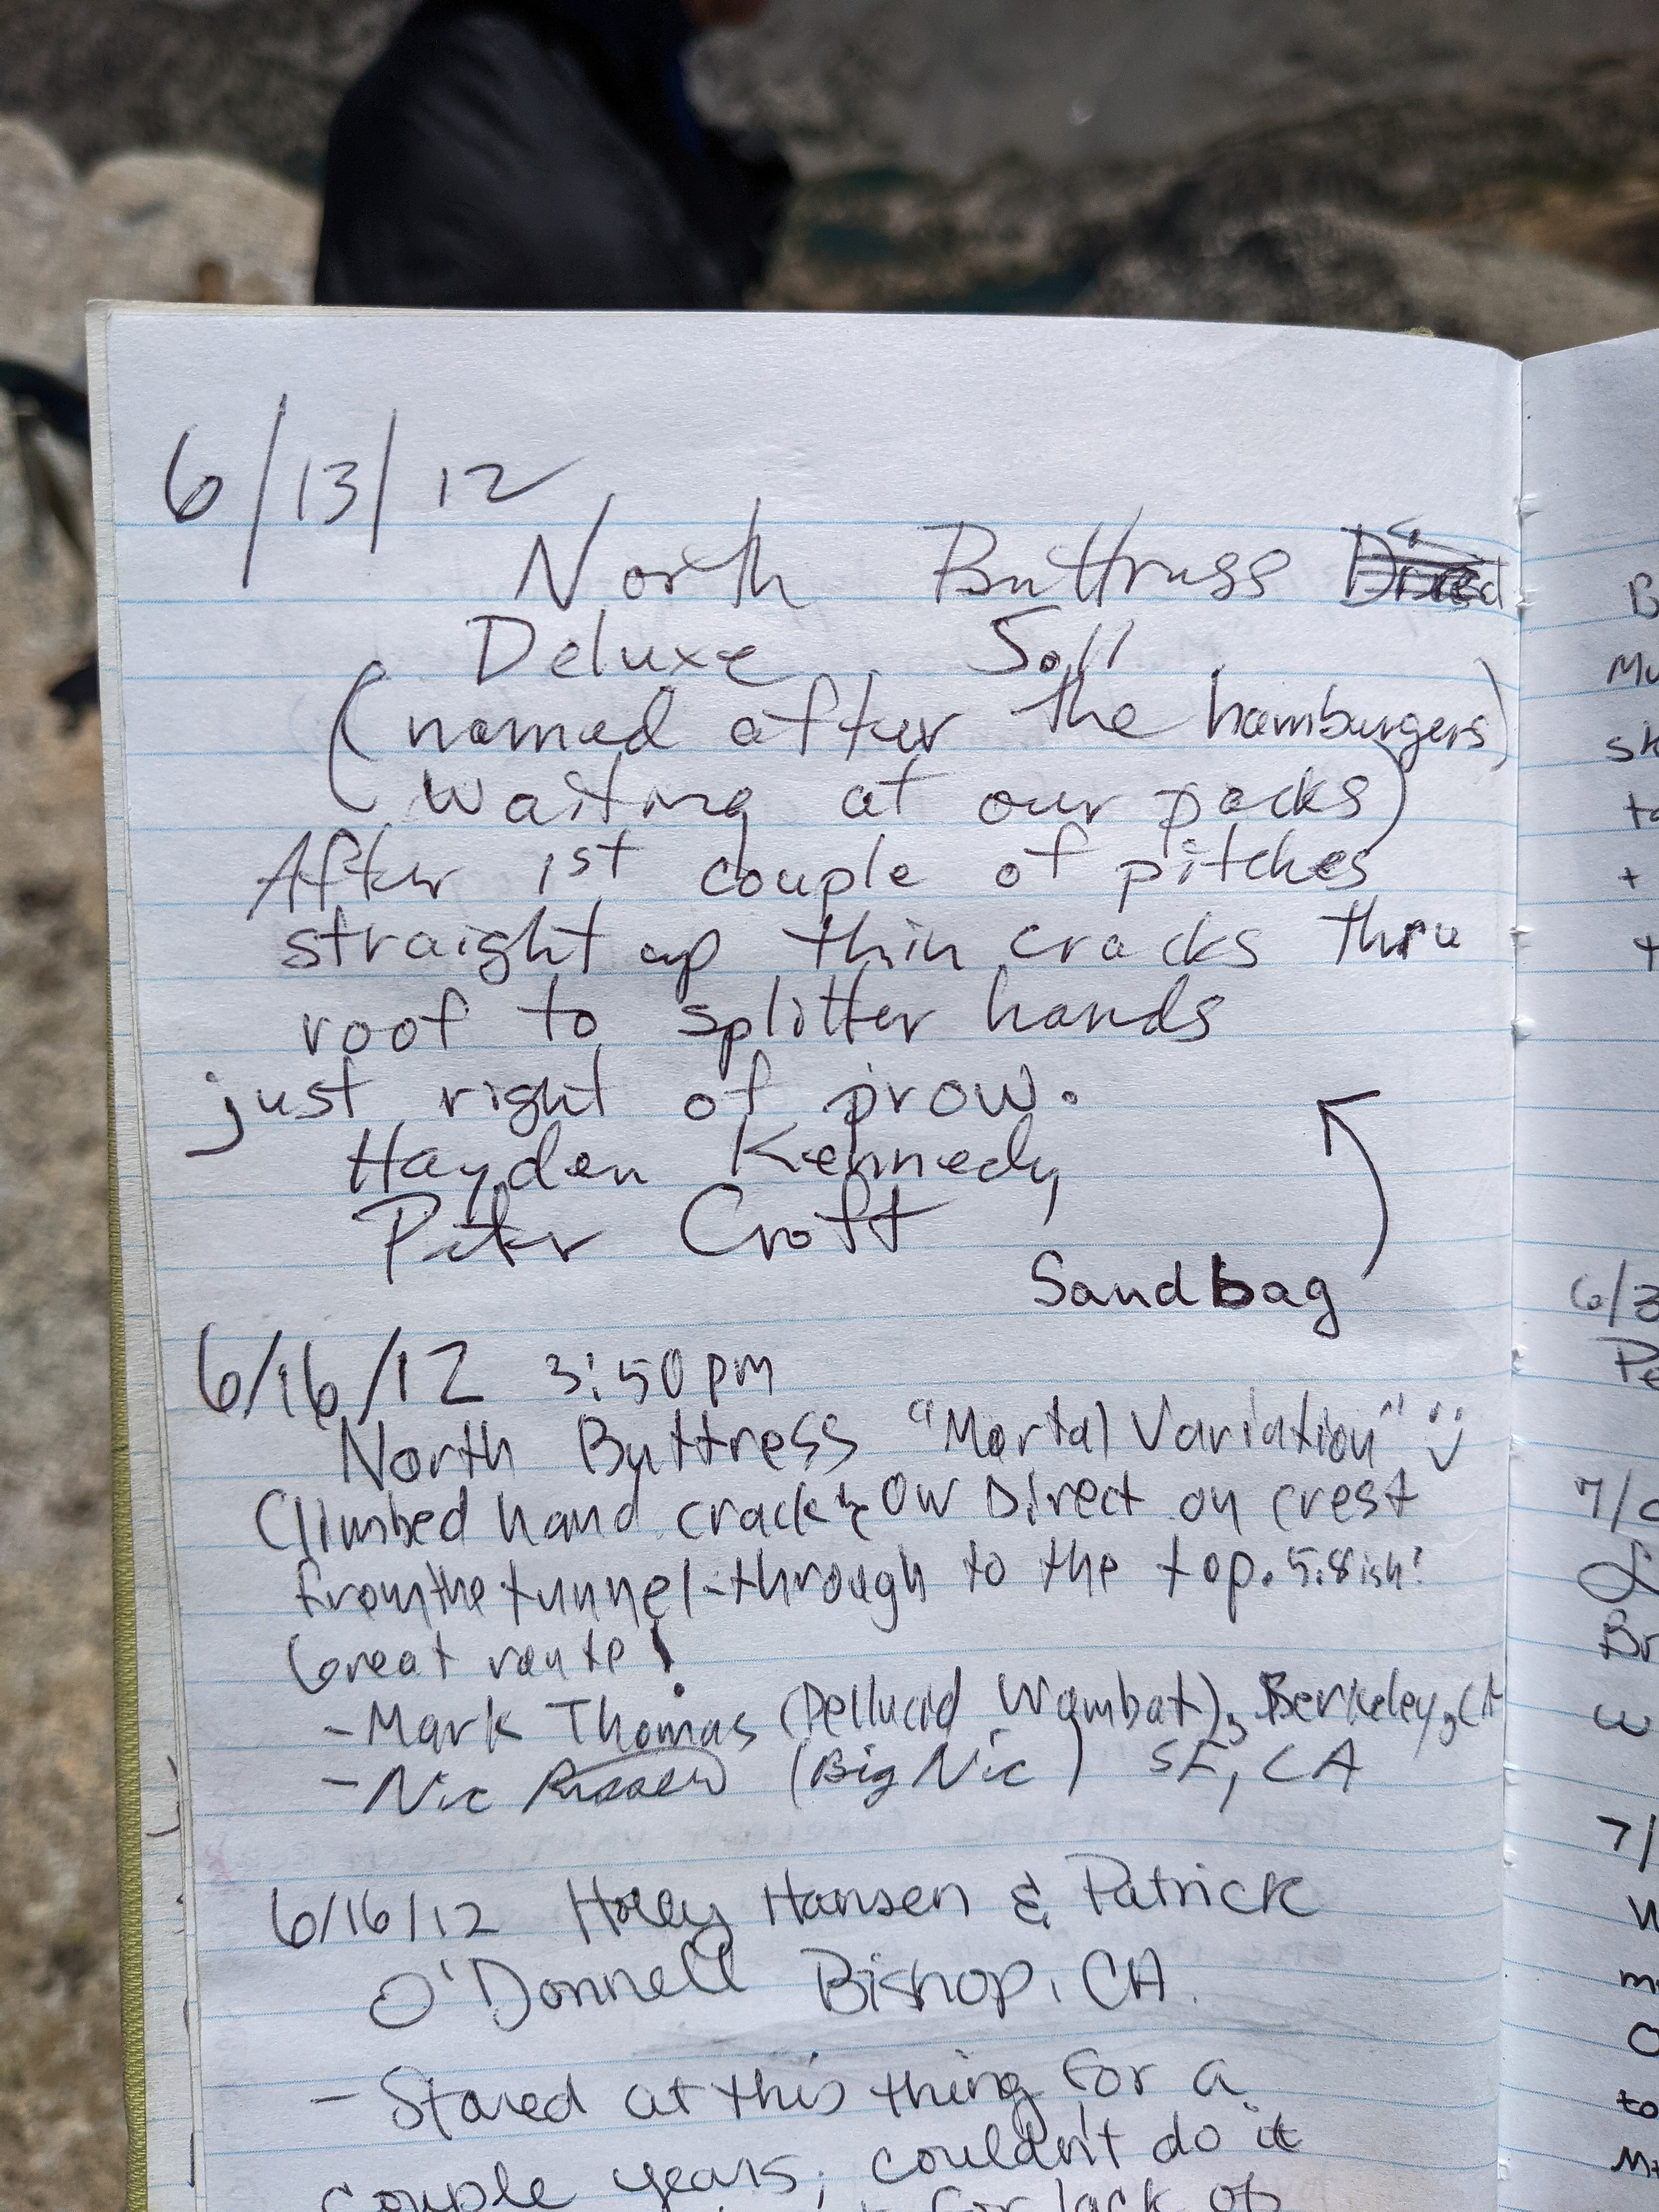 6/13/12
North Buttruss
Deluxe 5.11
(named after the hamburgers)
waiting at our packs)
After 1st couple of pitches
straight up thin cracks thru
roof to splitter hands
just right of prow.
Hayden Kennedy
Peter Croft
Sandbag
6/16/12 3:50pm
North Buttress "Mortal Variation" :)
Climbed hand crack & OW Direct on crest
from the tunnel-through to the top. 5.8ish!
Great route!
-Mark Thomas (Pellucid Wombat), Berkeley, CA
-Nic (Big Nic) SF, CA
6/16/12 Holly Hansen & Patrick
O'Donnell Bishop, CA.
- Stared at this thing for a
couple years, couldn't do it
for lack of
B
Mu
sk
to
+
t
6/3
Pe
7/
Br
w
7/
W
m
O
to